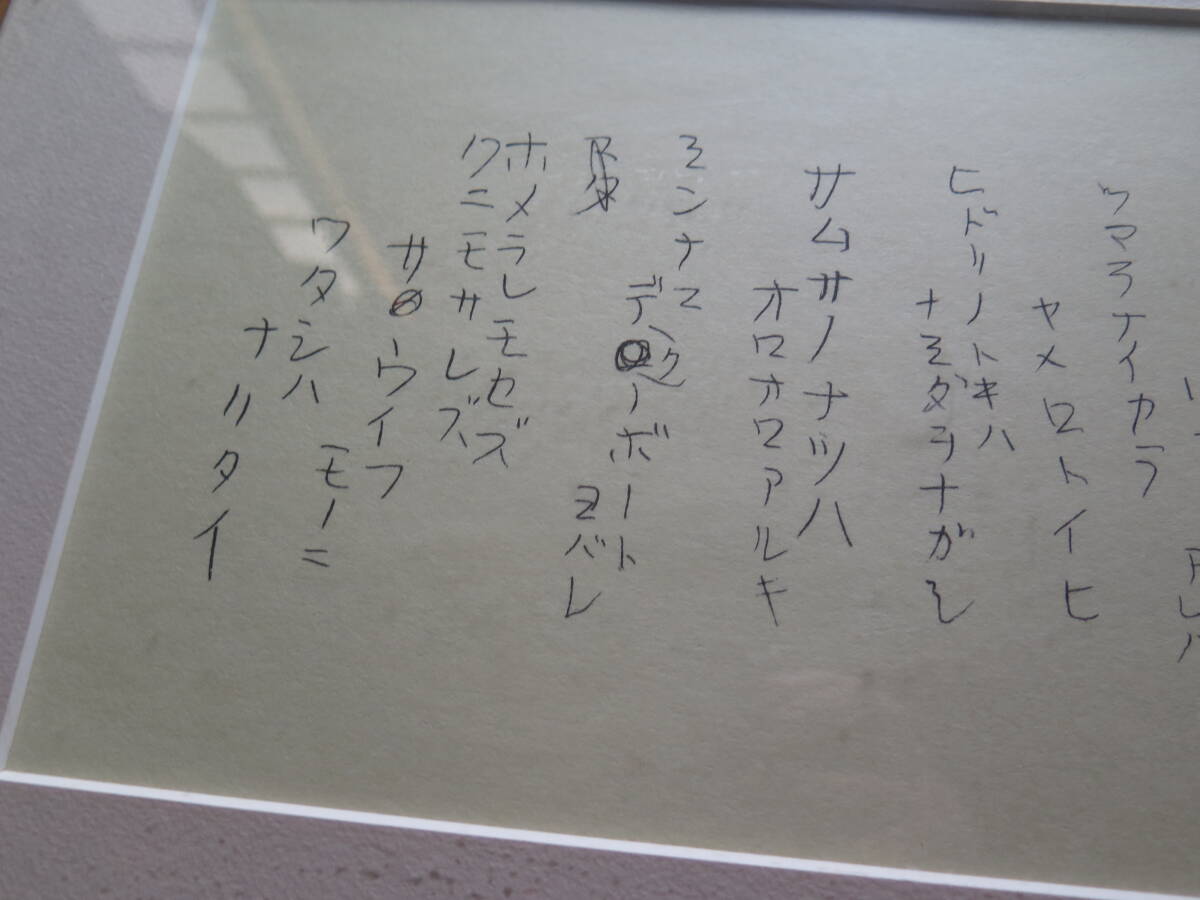 アレバ
ツマラナイカラ
ヤメロトイヒ
ヒドリノトキハ
ナミダヲナガシ
サムサノナツハ
オロオロアルキ
ミンナニ
デクノボート
ヨバレ
ホメラレモセズ
クニモサレズ
サウイフ
モノニ
ワタシハ
ナリタイ